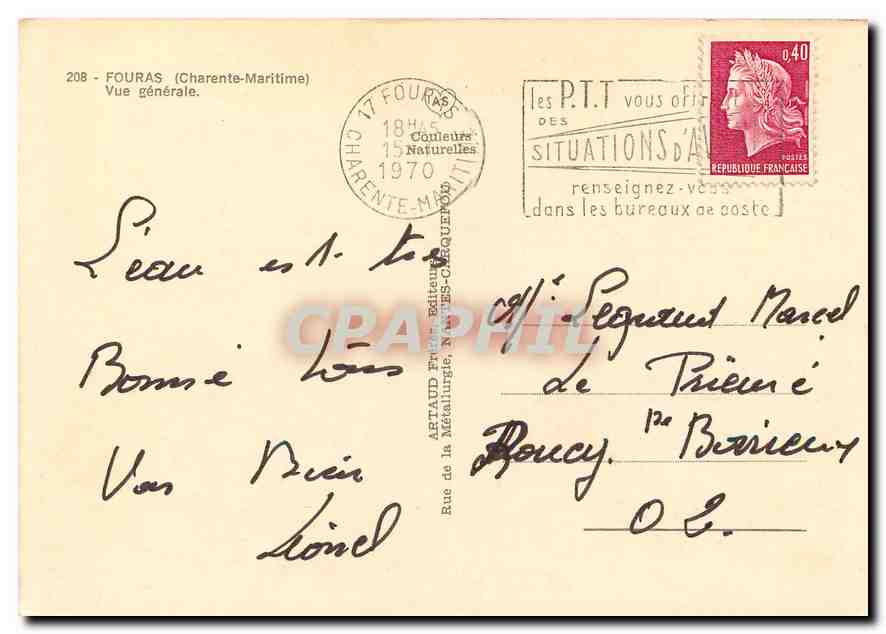 208 - FOURAS (Charente-Maritime)
Vue générale.
17 FOURAS
18H
15
1970
CHARENTE-MARITIME
AS
Couleurs
Naturelles
les P.T.T vous off
DES
SITUATIONS D'AV
renseignez-vous
dans les bureaux de poste
0,40
POSTES
RÉPUBLIQUE FRANÇAISE
L'eau est très
Bonne Tous
Vas Bien
Lionel
ARTAUD Frères, Editeurs
Rue de la Métallurgie, NANTES-CARQUEFOU
CPAPHIL
Mr Legrand Marcel
Le Prieuré
Roucy
02.